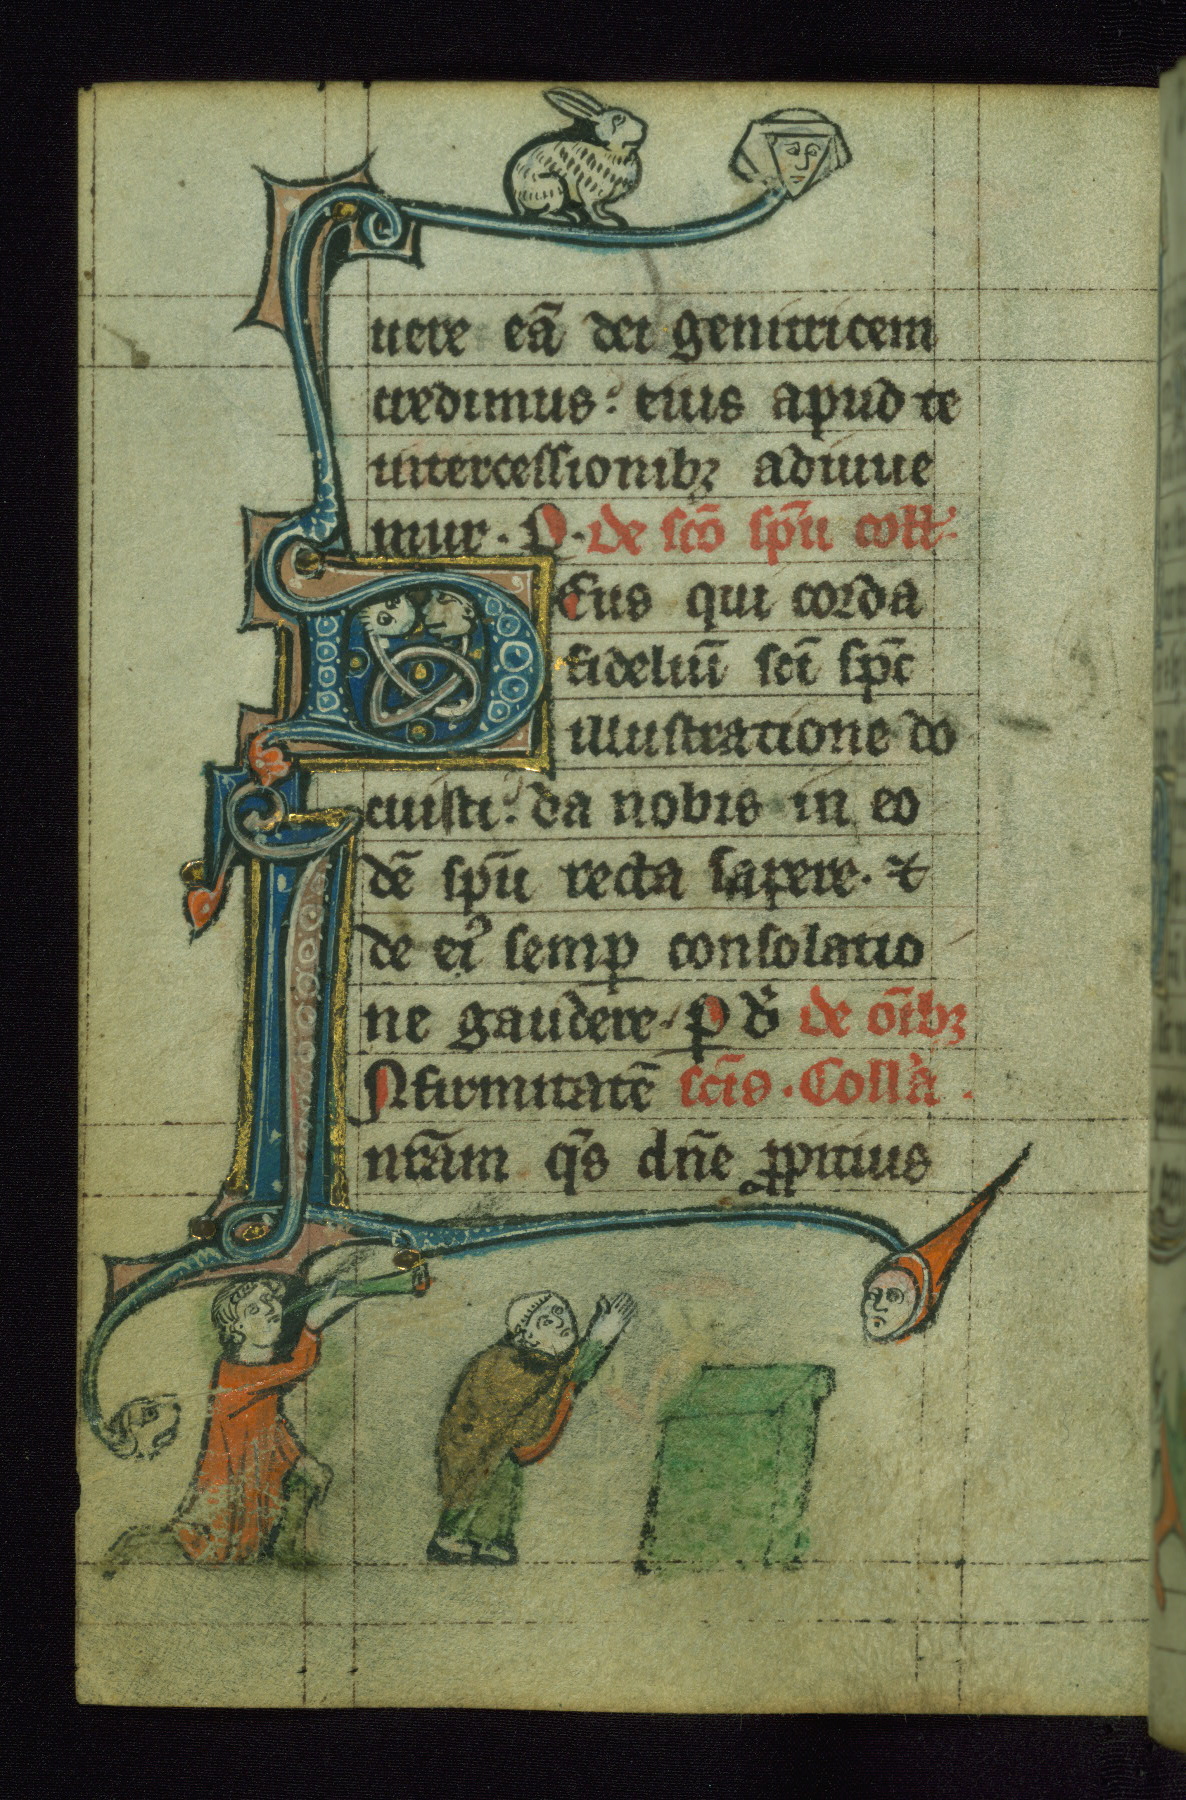 uere eā dei genitricem
credimus: eius apud te
intercessionibꝫ adiuue
mur. P. de sc̄o sp̄u coll̄.
Deus qui corda
fideliū sc̄i sp̄c
illustratione do
cuisti: da nobis in eo
dē sp̄u recta sapere. ⁊
de eiꝰ semꝑ consolatio
ne gaudere. ꝑ de om̄ibꝫ
Infirmitatē sc̄is. Coll'a.
nr̄am q̄s dn̄e ꝓpitius